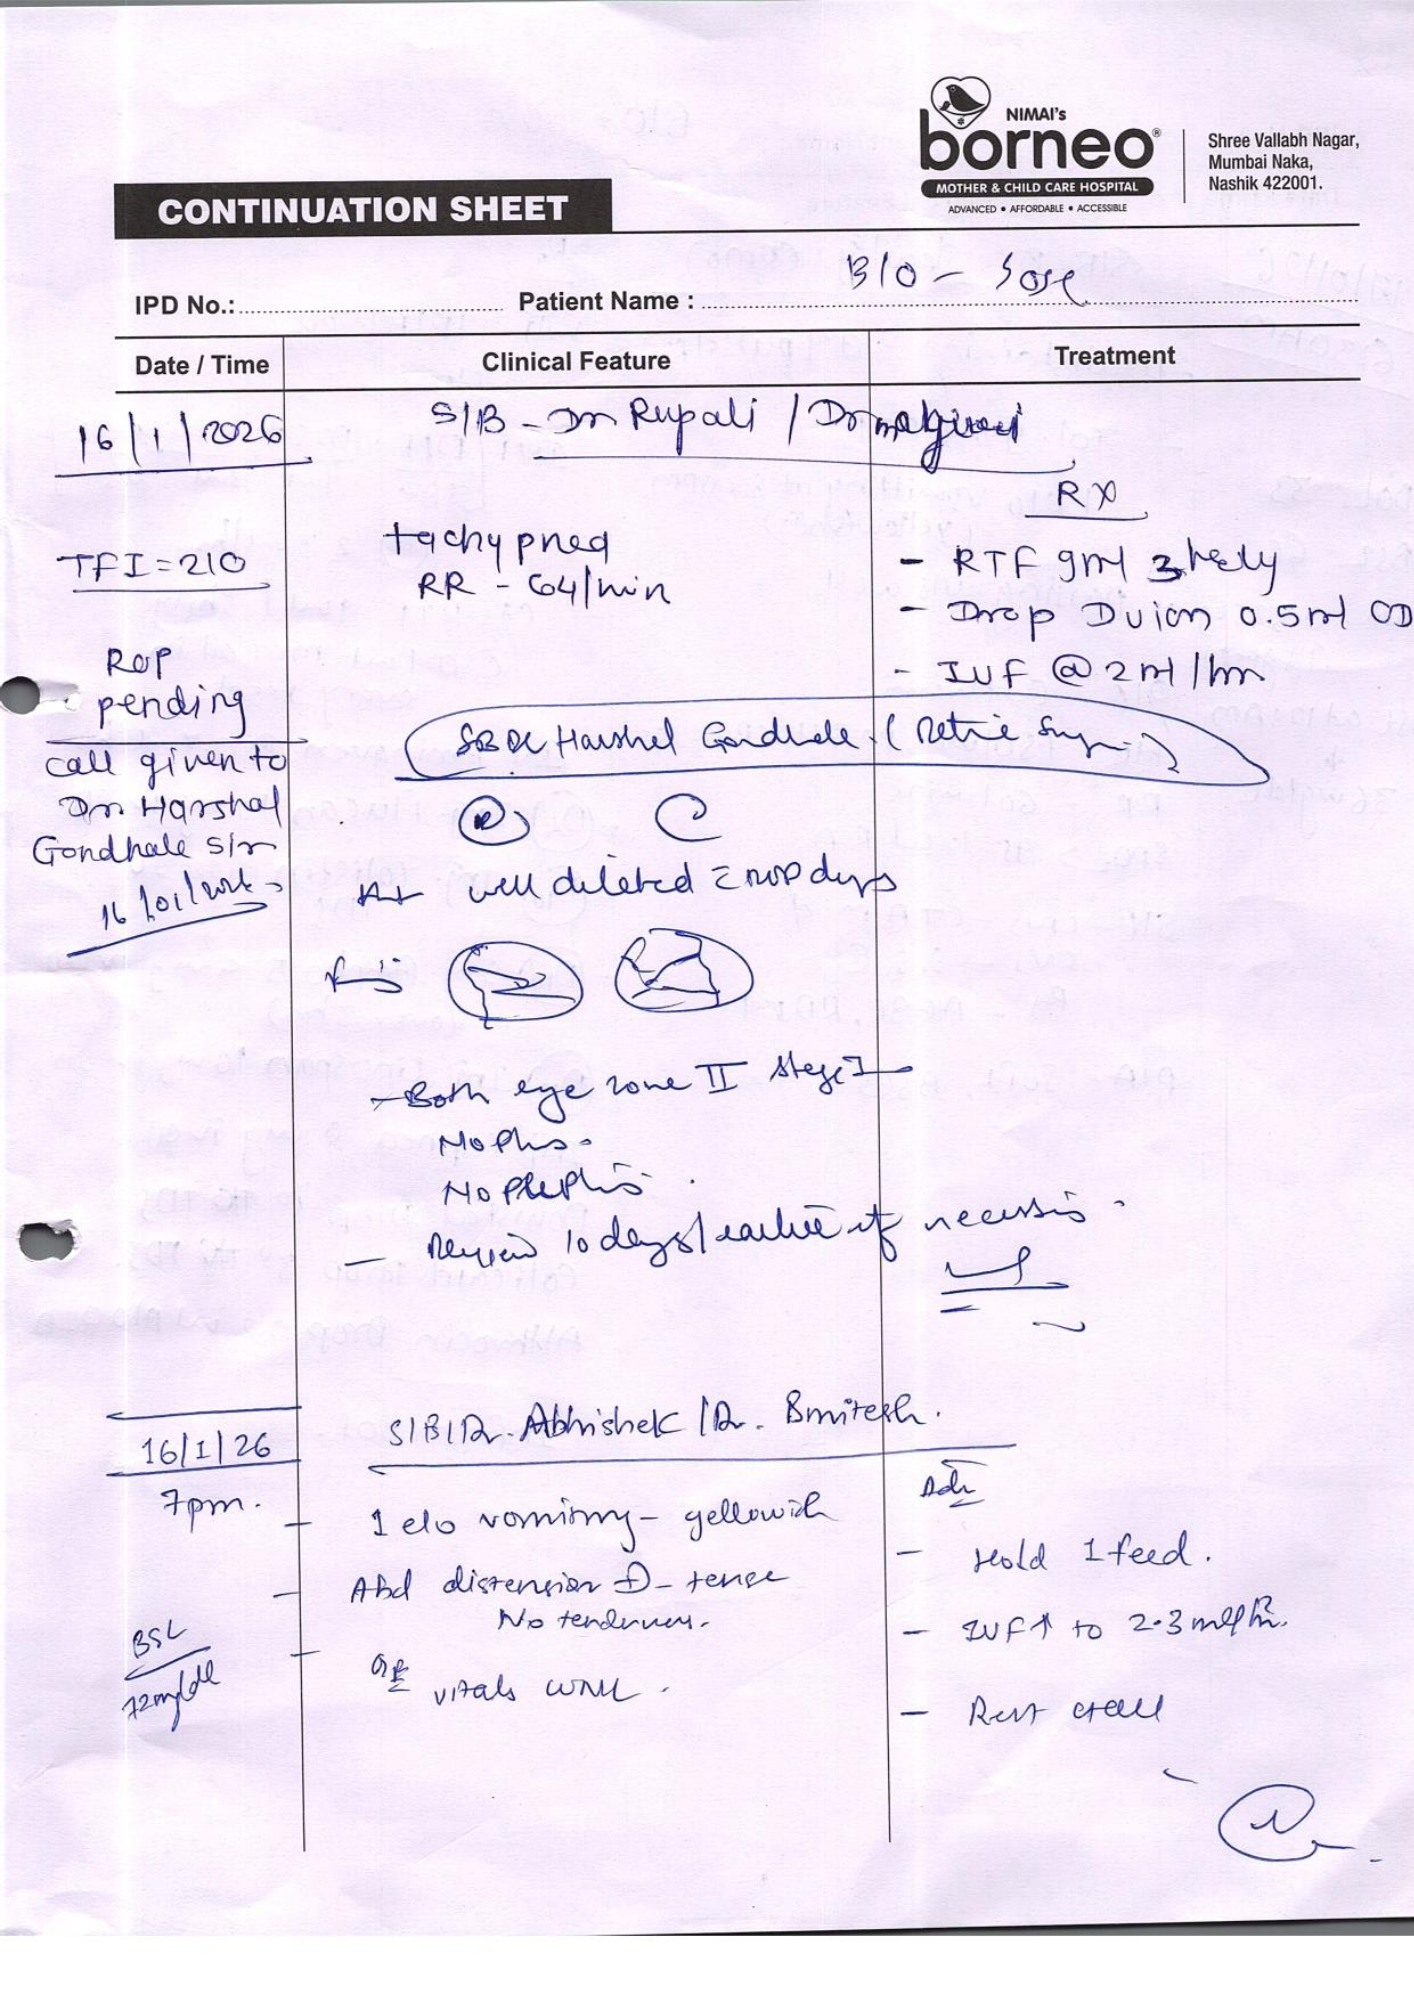 NIMAI's
borneo®
MOTHER & CHILD CARE HOSPITAL
ADVANCED • AFFORDABLE • ACCESSIBLE
Shree Vallabh Nagar,
Mumbai Naka,
Nashik 422001.
CONTINUATION SHEET
IPD No.: Patient Name : B/O - Sose
Date / Time Clinical Feature Treatment
16/1/2026 S/B - Dr Rupali / Dr
RX
TFI = 210
tachypnea
RR - 64/min
- RTF 9ml 3 hrly
- Drop 0.5ml OD
- IVF @ 2ml/hr
ROP
pending
call given to
Dr. Harshal
Gondhale sir
16/01/
Harshal Gondhale (Retric
well dileted
- Both eye zone II stage I
No Plus.
No
- Review 10 days/earlier if
16/1/26
7pm.
S/B/Dr. Abhishek /Dr.
1 e/o vomiting - yellowish
Abd distension ⊕ - tense
No tenderness.
O/E vitals WNL.
BSL
72mg/dl
Adv
- Hold 1 feed.
- IVF↑ to 2.3 ml/hr.
- Rest